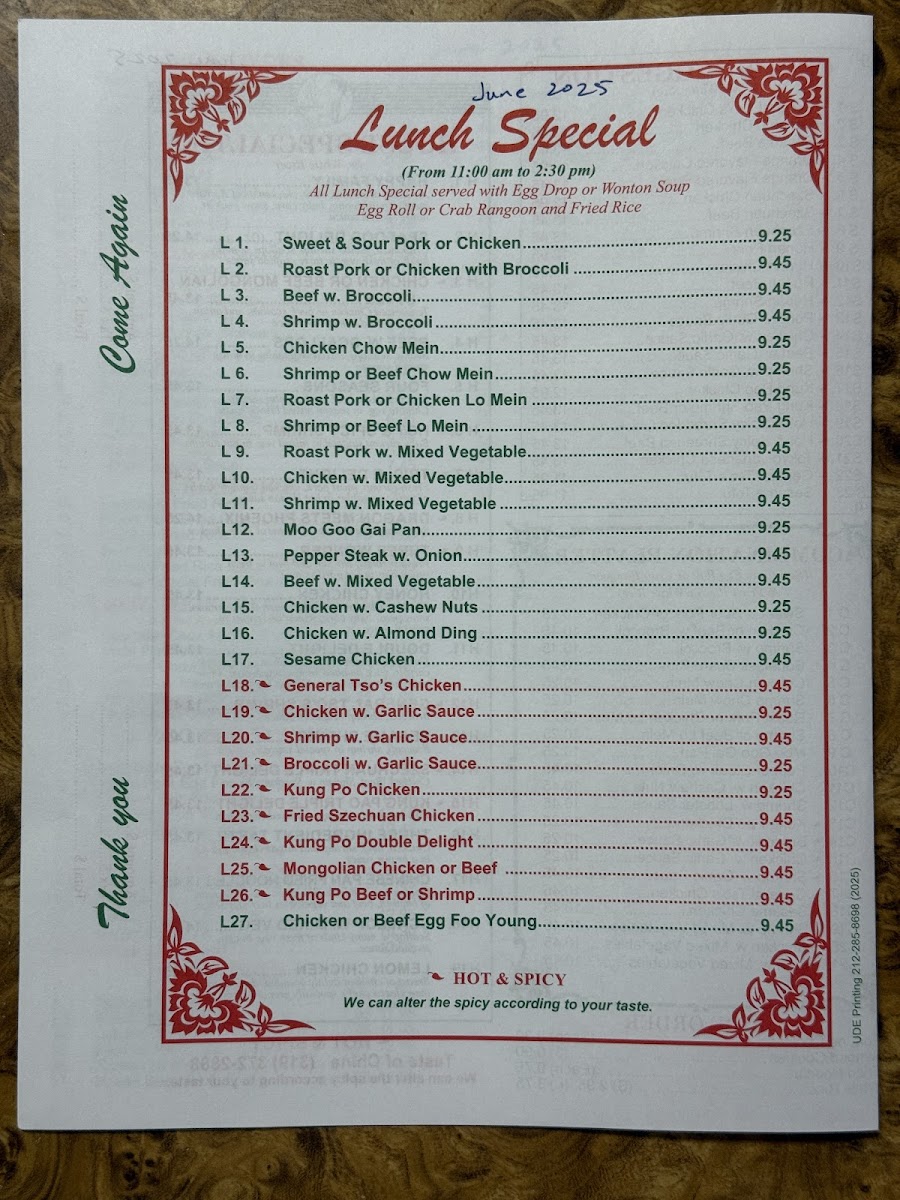 June 2025
Lunch Special
(From 11:00 am to 2:30 pm)
All Lunch Special served with Egg Drop or Wonton Soup
Egg Roll or Crab Rangoon and Fried Rice
L 1. Sweet & Sour Pork or Chicken 9.25
L 2. Roast Pork or Chicken with Broccoli 9.45
L 3. Beef w. Broccoli 9.45
L 4. Shrimp w. Broccoli 9.45
L 5. Chicken Chow Mein 9.25
L 6. Shrimp or Beef Chow Mein 9.25
L 7. Roast Pork or Chicken Lo Mein 9.25
L 8. Shrimp or Beef Lo Mein 9.25
L 9. Roast Pork w. Mixed Vegetable 9.45
L10. Chicken w. Mixed Vegetable 9.45
L11. Shrimp w. Mixed Vegetable 9.45
L12. Moo Goo Gai Pan 9.25
L13. Pepper Steak w. Onion 9.45
L14. Beef w. Mixed Vegetable 9.45
L15. Chicken w. Cashew Nuts 9.25
L16. Chicken w. Almond Ding 9.25
L17. Sesame Chicken 9.45
L18. General Tso's Chicken 9.45
L19. Chicken w. Garlic Sauce 9.25
L20. Shrimp w. Garlic Sauce 9.45
L21. Broccoli w. Garlic Sauce 9.25
L22. Kung Po Chicken 9.25
L23. Fried Szechuan Chicken 9.45
L24. Kung Po Double Delight 9.45
L25. Mongolian Chicken or Beef 9.45
L26. Kung Po Beef or Shrimp 9.45
L27. Chicken or Beef Egg Foo Young 9.45
HOT & SPICY
We can alter the spicy according to your taste.
Thank you
Come Again
UDE Printing 212-285-8698 (2025)